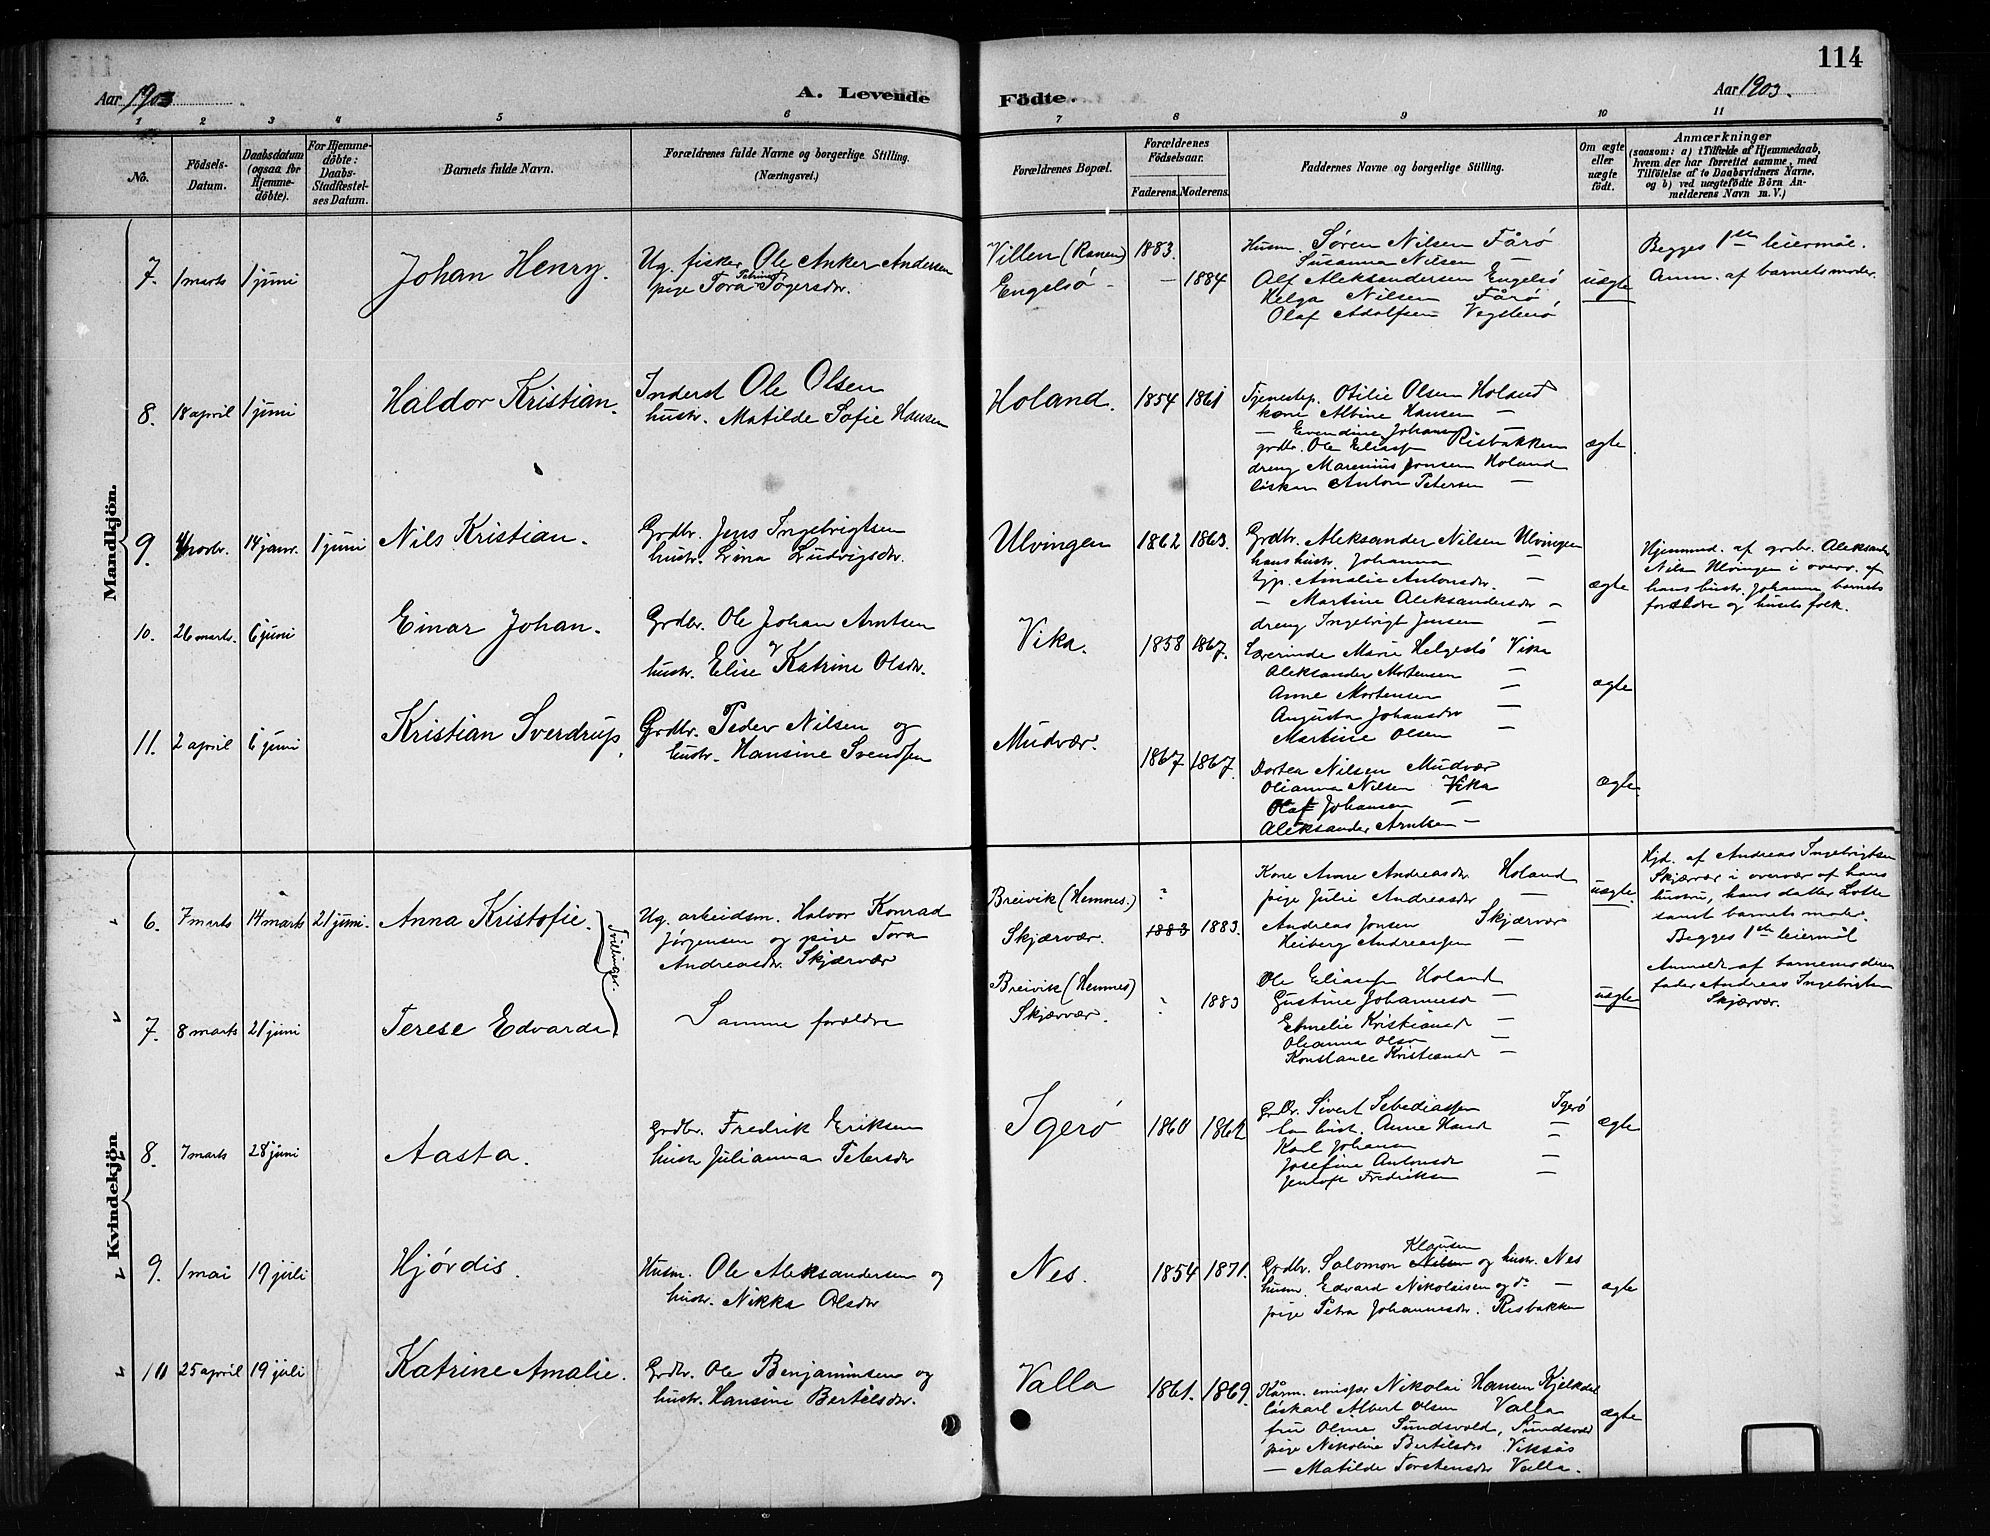 114
Aar 1903
A. Levende Födte.
Aar 1903.
1 2 3 4 5 6 7 8 9 10 11
No.
Födsels-Datum.
Daabsdatum (ogsaa for Hjemmedöbte).
For Hjemmedöbte: Daabs-Stadfæstelses Datum.
Barnets fulde Navn.
Forældrenes fulde Navne og borgerlige Stilling.
(Næringsvei.)
Forældrenes Bopæl.
Forældrenes Födselsaar.
Faderens. Moderens.
Faddernes Navne og borgerlige Stilling.
Om ægte eller uægte födt.
Anmærkninger
(saasom: a) i Tilfælde af Hjemmedaab,
hvem der har forrettet samme, med
Tilföielse af to Daabsvidners Navne,
og b) ved uægtefödte Börn Anmelderens Navn m. V.)
Mandkjön.
7. 1 marts 1 juni Johan Henry.
Ug. fisker Ole Anker Andersen
pige Tora Petrine Togersdtr.
Villen (Ranen) 1883.
Engelsø - — 1884
Husm. Søren Nilsen Fårø
Susanna Nilsen —
Alf Aleksandersen Engelsø
Helga Nilsen Fårø
Olaf Adolfsen Vegstenø
uægte
Begges 1ste leiermål.
Anm. af barnets moder.
8. 18 april 1 juni Haldor Kristian.
Inderst Ole Olsen
hustr. Matilde Sofie Hansen
Holand. 1854 1861
Tjenestep. Otilie Olsen Holand
kone Albine Hansen —
— Evendine Johansen —
grdbr. Ole Eliassen Risbakken
dreng Marenius Jonsen Holand
løskar Anton Petersen —
ægte
9. 4 novbr. 14 janr. 1 juni Nils Kristian.
Grdbr. Jens Ingebrigtsen
hustr. Lina Ludvigsdtr.
Ulvingen 1862 1863.
Grdbr. Aleksander Nilsen Ulvingen
hans hustr. Johanna
tjp. Amalie Antonsdtr. —
— Martine Aleksandersdtr —
dreng Ingebrigt Jensen —
ægte
Hjemmed. af grdbr. Aleksander
Nilsen Ulvingen i overv. af
hans hustr. Johanna barnets
forældre og husets folk.
10. 26 marts. 6 juni Einar Johan.
Grdbr. Ole Johan Arntsen
og
hustr. Elise Katrine Olsdtr.
Vika. 1858 1867.
Lærerinde Marie Helgestø Vika
Aleksander Mortensen —
Anne Mortensen —
Augusta Johansdtr —
Martine Olsen —
ægte
11. 2 april 6 juni Kristian Sverdrup.
Grdbr. Peder Nilsen og
hustr. Hansine Svendsen
Mudvær. 1867 1867.
Dortea Nilsen Mudvær
Olianna Nilsen Vika
Olaf Johansen —
Aleksander Arntsen —
ægte
Kvindekjön
6. 7 marts 14 marts 21 juni. Anna Kristofie.
Tvillinger.
Ug. arbeidsm. Halvor Konrad
Jørgensen og pige Tora
Andreasdtr. Skjærvær
Breivik (Hemnes.) "
Skjærvær. 1883 1883.
Kone Anne Andreasdtr Holand
pige Julie Andreasdtr —
Andreas Jonsen Skjærvær
Heiberg Andreassen —
uægte
Hjd. af Andreas Ingebrigtsen
Skjærvær i overvær af hans
hustru, hans datter Lotte
samt barnets moder.
Begges 1ste leiermål
7. 8 marts 21 juni Terese Edvarda
Samme forældre
Breivik (Hemnes)
Skjærvær. " 1883
Ole Eliassen Holand
Gustine Johannesd —
Emelie Kristiansd —
Olianna Olsn —
Konstance Kristiansd —
uægte
Anmeldt af barnemoderens
fader Andreas Ingebrigtsen
Skjærvær.
8. 7 marts 28 juni Aasta.
Grdbr. Fredrik Eriksen
hustr Julianna Petersdtr
Igerø 1860 1862
Grdbr. Sivert Sebediassen Igerø
han hust. Anne Hansd —
Karl Johansn —
Josefine Antonsdtr —
Jentoft Fredriksen —
ægte
9. 1 mai 19 juli Hjørdis.
Husm. Ole Aleksandersen og
hustr. Nikka Olsdtr
Nes. 1854 1871.
Klausen
Grdbr. Salomon Nilsen og hustr. Nes
husm. Edvard Nikolaisen og do —
pige Petra Johannesdtr. Risbakken
ægte
10 25 april 19 juli Katrine Amalie.
Grdbr. Ole Benjaminsen og
hustr. Hansine Bertelsdtr.
Valla 1861. 1869.
Nikolai Hansen Kjelkdal
løskarl Albert Olsen Valla
fru Oline Sundsvold, Sundsvold
pige Nikoline Bertelsdtr Viksås
— Matilde Torstensdtr Valla.
ægte